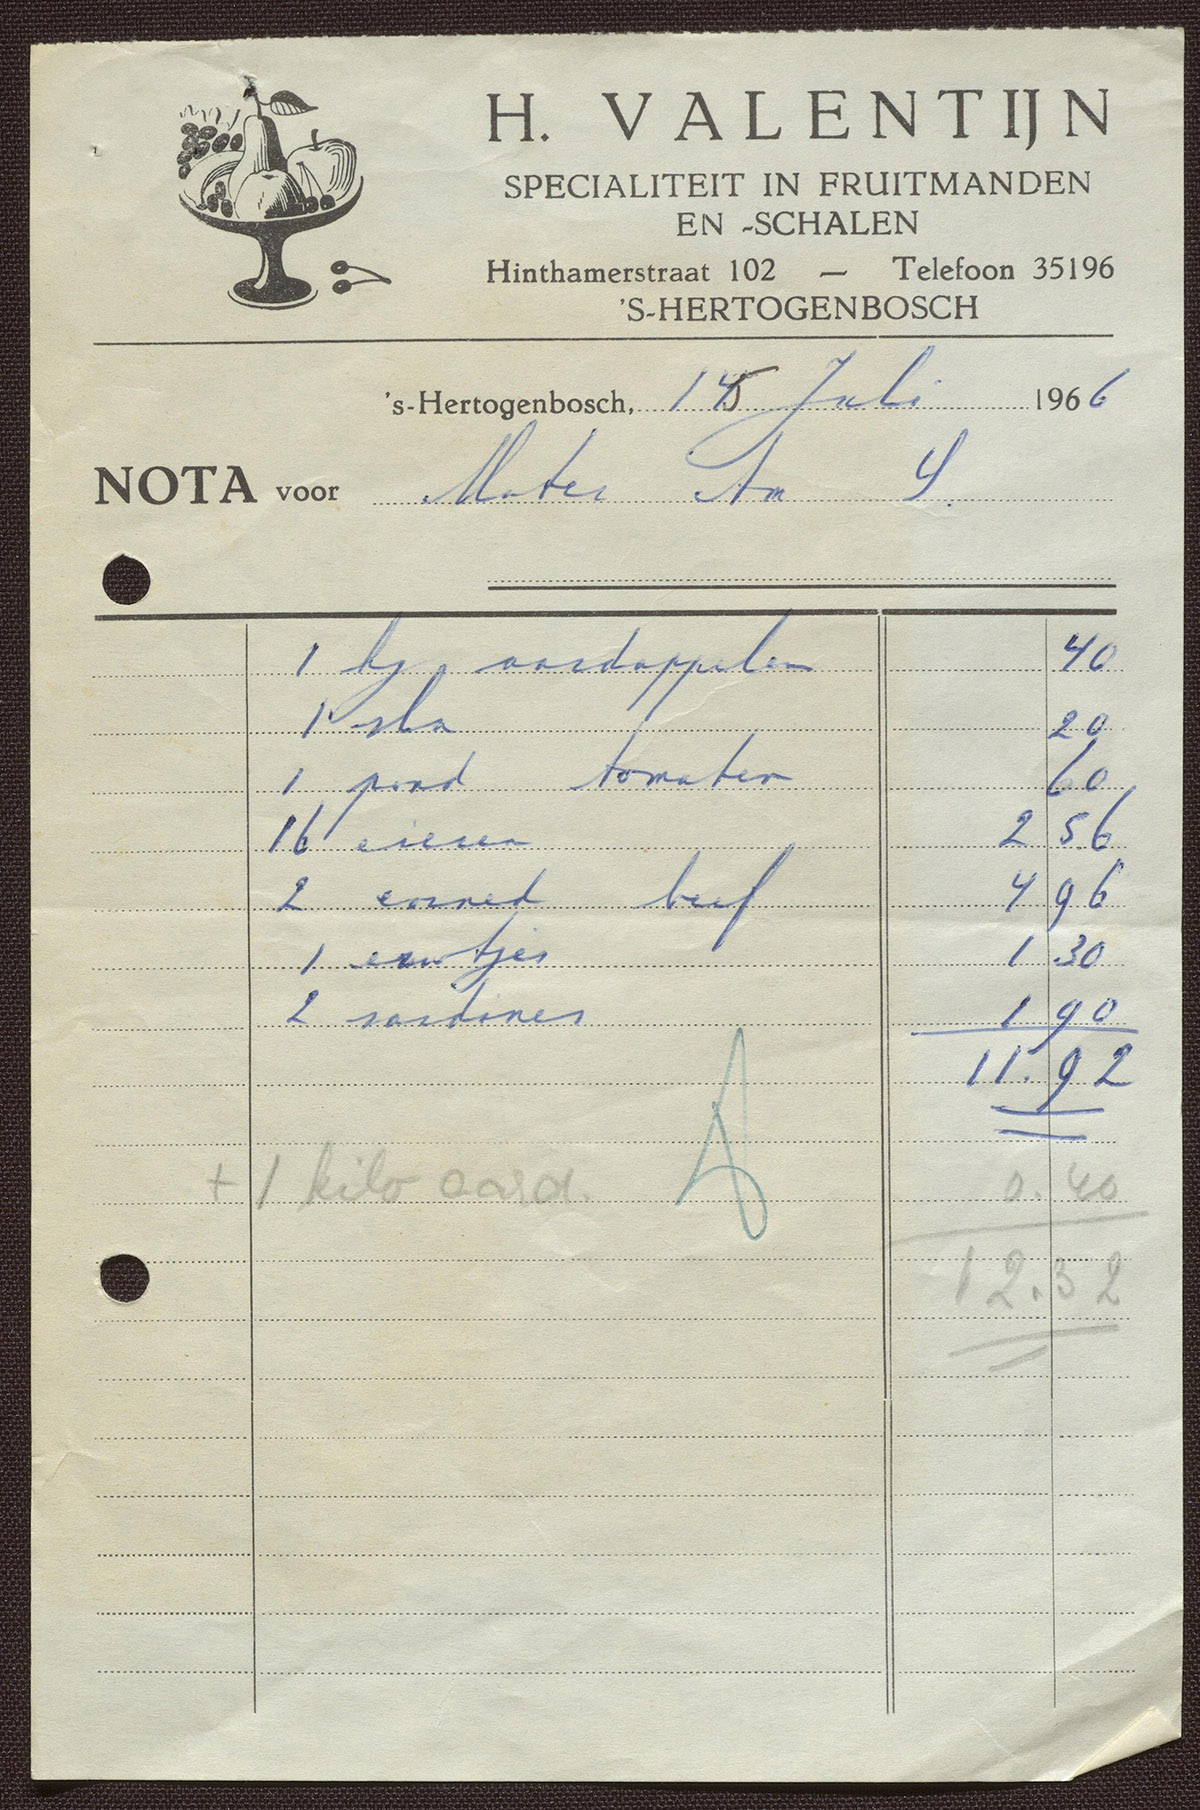 H. VALENTIJN
SPECIALITEIT IN FRUITMANDEN
EN -SCHALEN
Hinthamerstraat 102 — Telefoon 35196
'S-HERTOGENBOSCH
's-Hertogenbosch, 15 Juli 1966
NOTA voor Mater Am
1 kg aardappelen 40
1 sla 20
1 pond tomaten 60
16 eieren 2 56
2 corned beef 4 96
1 erwtjes 1 30
2 sardines 1 90
11.92
+ 1 kilo aard. 0.40
12.32